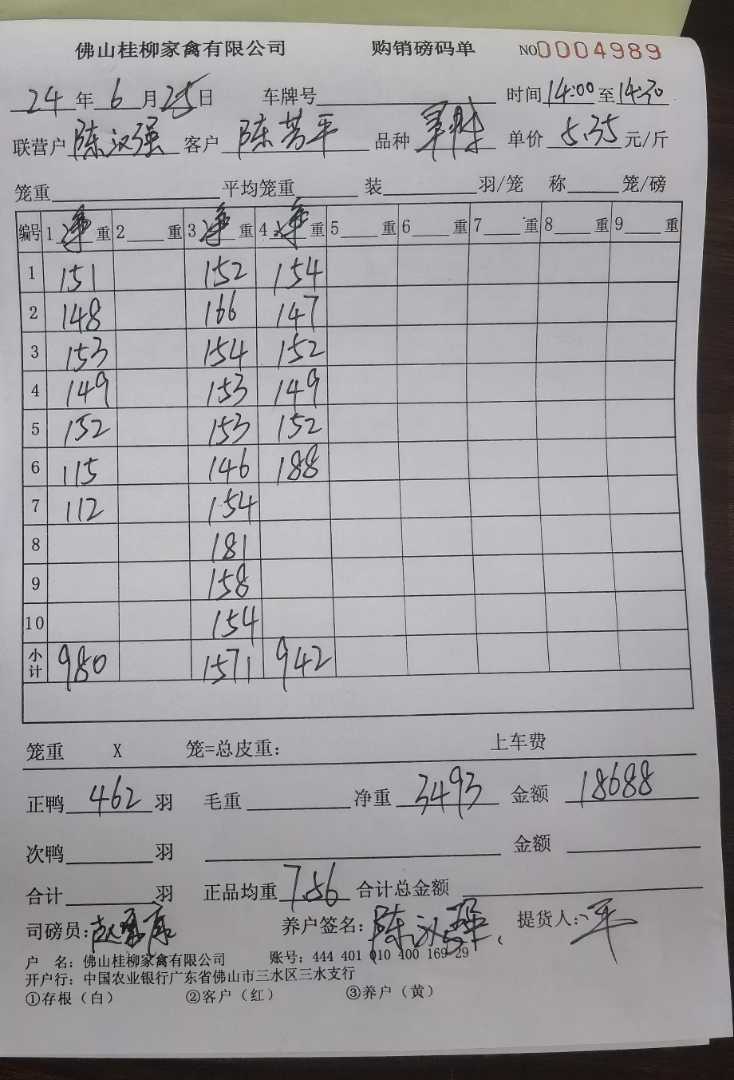 佛山桂柳家禽有限公司 购销磅码单 NO0004989
24年6月25日 车牌号 时间14:00至14:30
联营户陈汉强 客户陈芳平 品种 单价5.35元/斤
笼重 平均笼重 装 羽/笼 称 笼/磅
编号 1净重 2 重 3净重 4净重 5 重 6 重 7 重 8 重 9 重
1 151 152 154
2 148 166 147
3 153 154 152
4 149 153 149
5 152 153 152
6 115 146 188
7 112 154
8 181
9 158
10 154
小计 980 1571 942
笼重 X 笼=总皮重: 上车费
正鸭462羽 毛重 净重3493 金额18688
次鸭 羽 金额
合计 羽 正品均重7.56 合计总金额
司磅员: 养户签名:陈汉强 提货人:平
户 名:佛山桂柳家禽有限公司 账号:444 401 010 400 169 29
开户行:中国农业银行广东省佛山市三水区三水支行
①存根(白) ②客户(红) ③养户(黄)